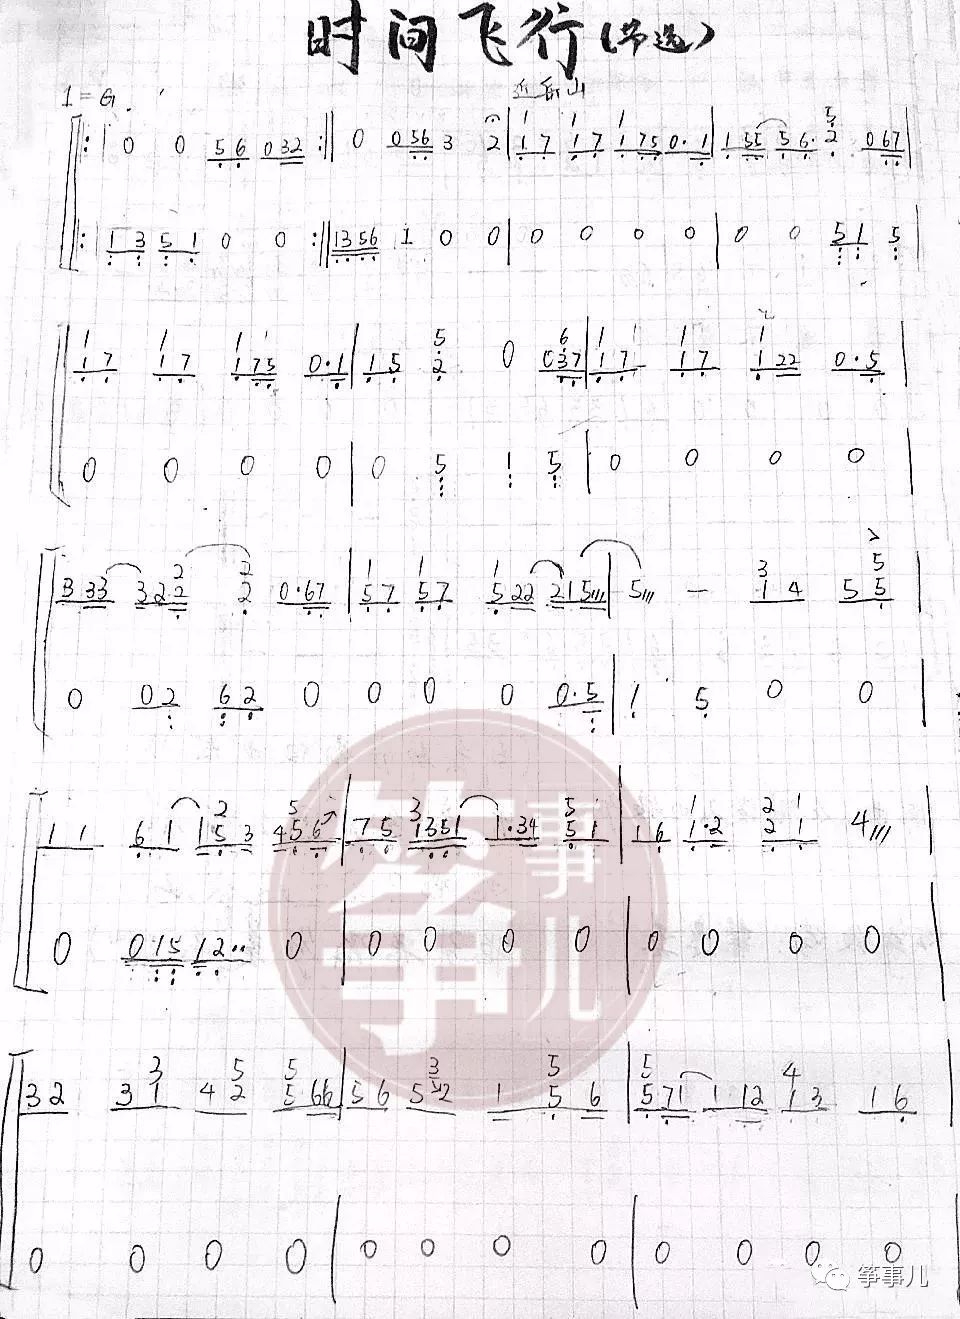 时间飞行(节选)
1=G
近岳山
‖: 0 0 56 032 :‖ 0 056 3 2 | 17 17 175 0·1 | 155 56· 2 067 |
‖: 13 51 0 0 :‖ 1356 1 0 0 | 0 0 0 0 | 0 0 51 5 |
17 17 175 0·1 | 15 2 0 037 | 17 17 122 0·5 |
0 0 0 0 | 0 5 1 5 | 0 0 0 0 |
333 322 2 0·67 | 57 57 522 215 | 5 — 14 55
0 02 62 0 0 0 0 0·5 | 1 5 0 0 |
11 61 153 456 | 75 1351 1·34 51 | 16 1·2 21 4 |
0 0·15 12·· 0 | 0 0 0 0 | 0 0 0 0 |
32 31 42 566 | 56 52 1 56 | 571 112 13 16 |
0 0 0 0 | 0 0 0 0 | 0 0 0 0
筝事儿
筝事儿